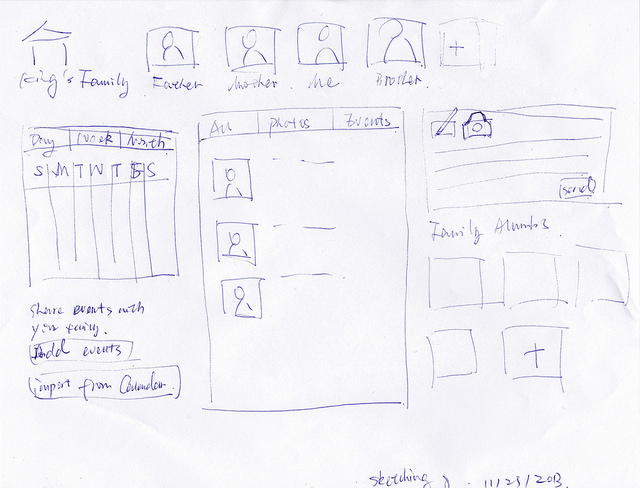 King's Family
Father
Mother
Me
Brother
+
Day Week Month
S M T W T F S
Share events with
your family.
Add events
import from Calendar
All photos Events
send
Family Alumbs
+
sketching 11/23/2013